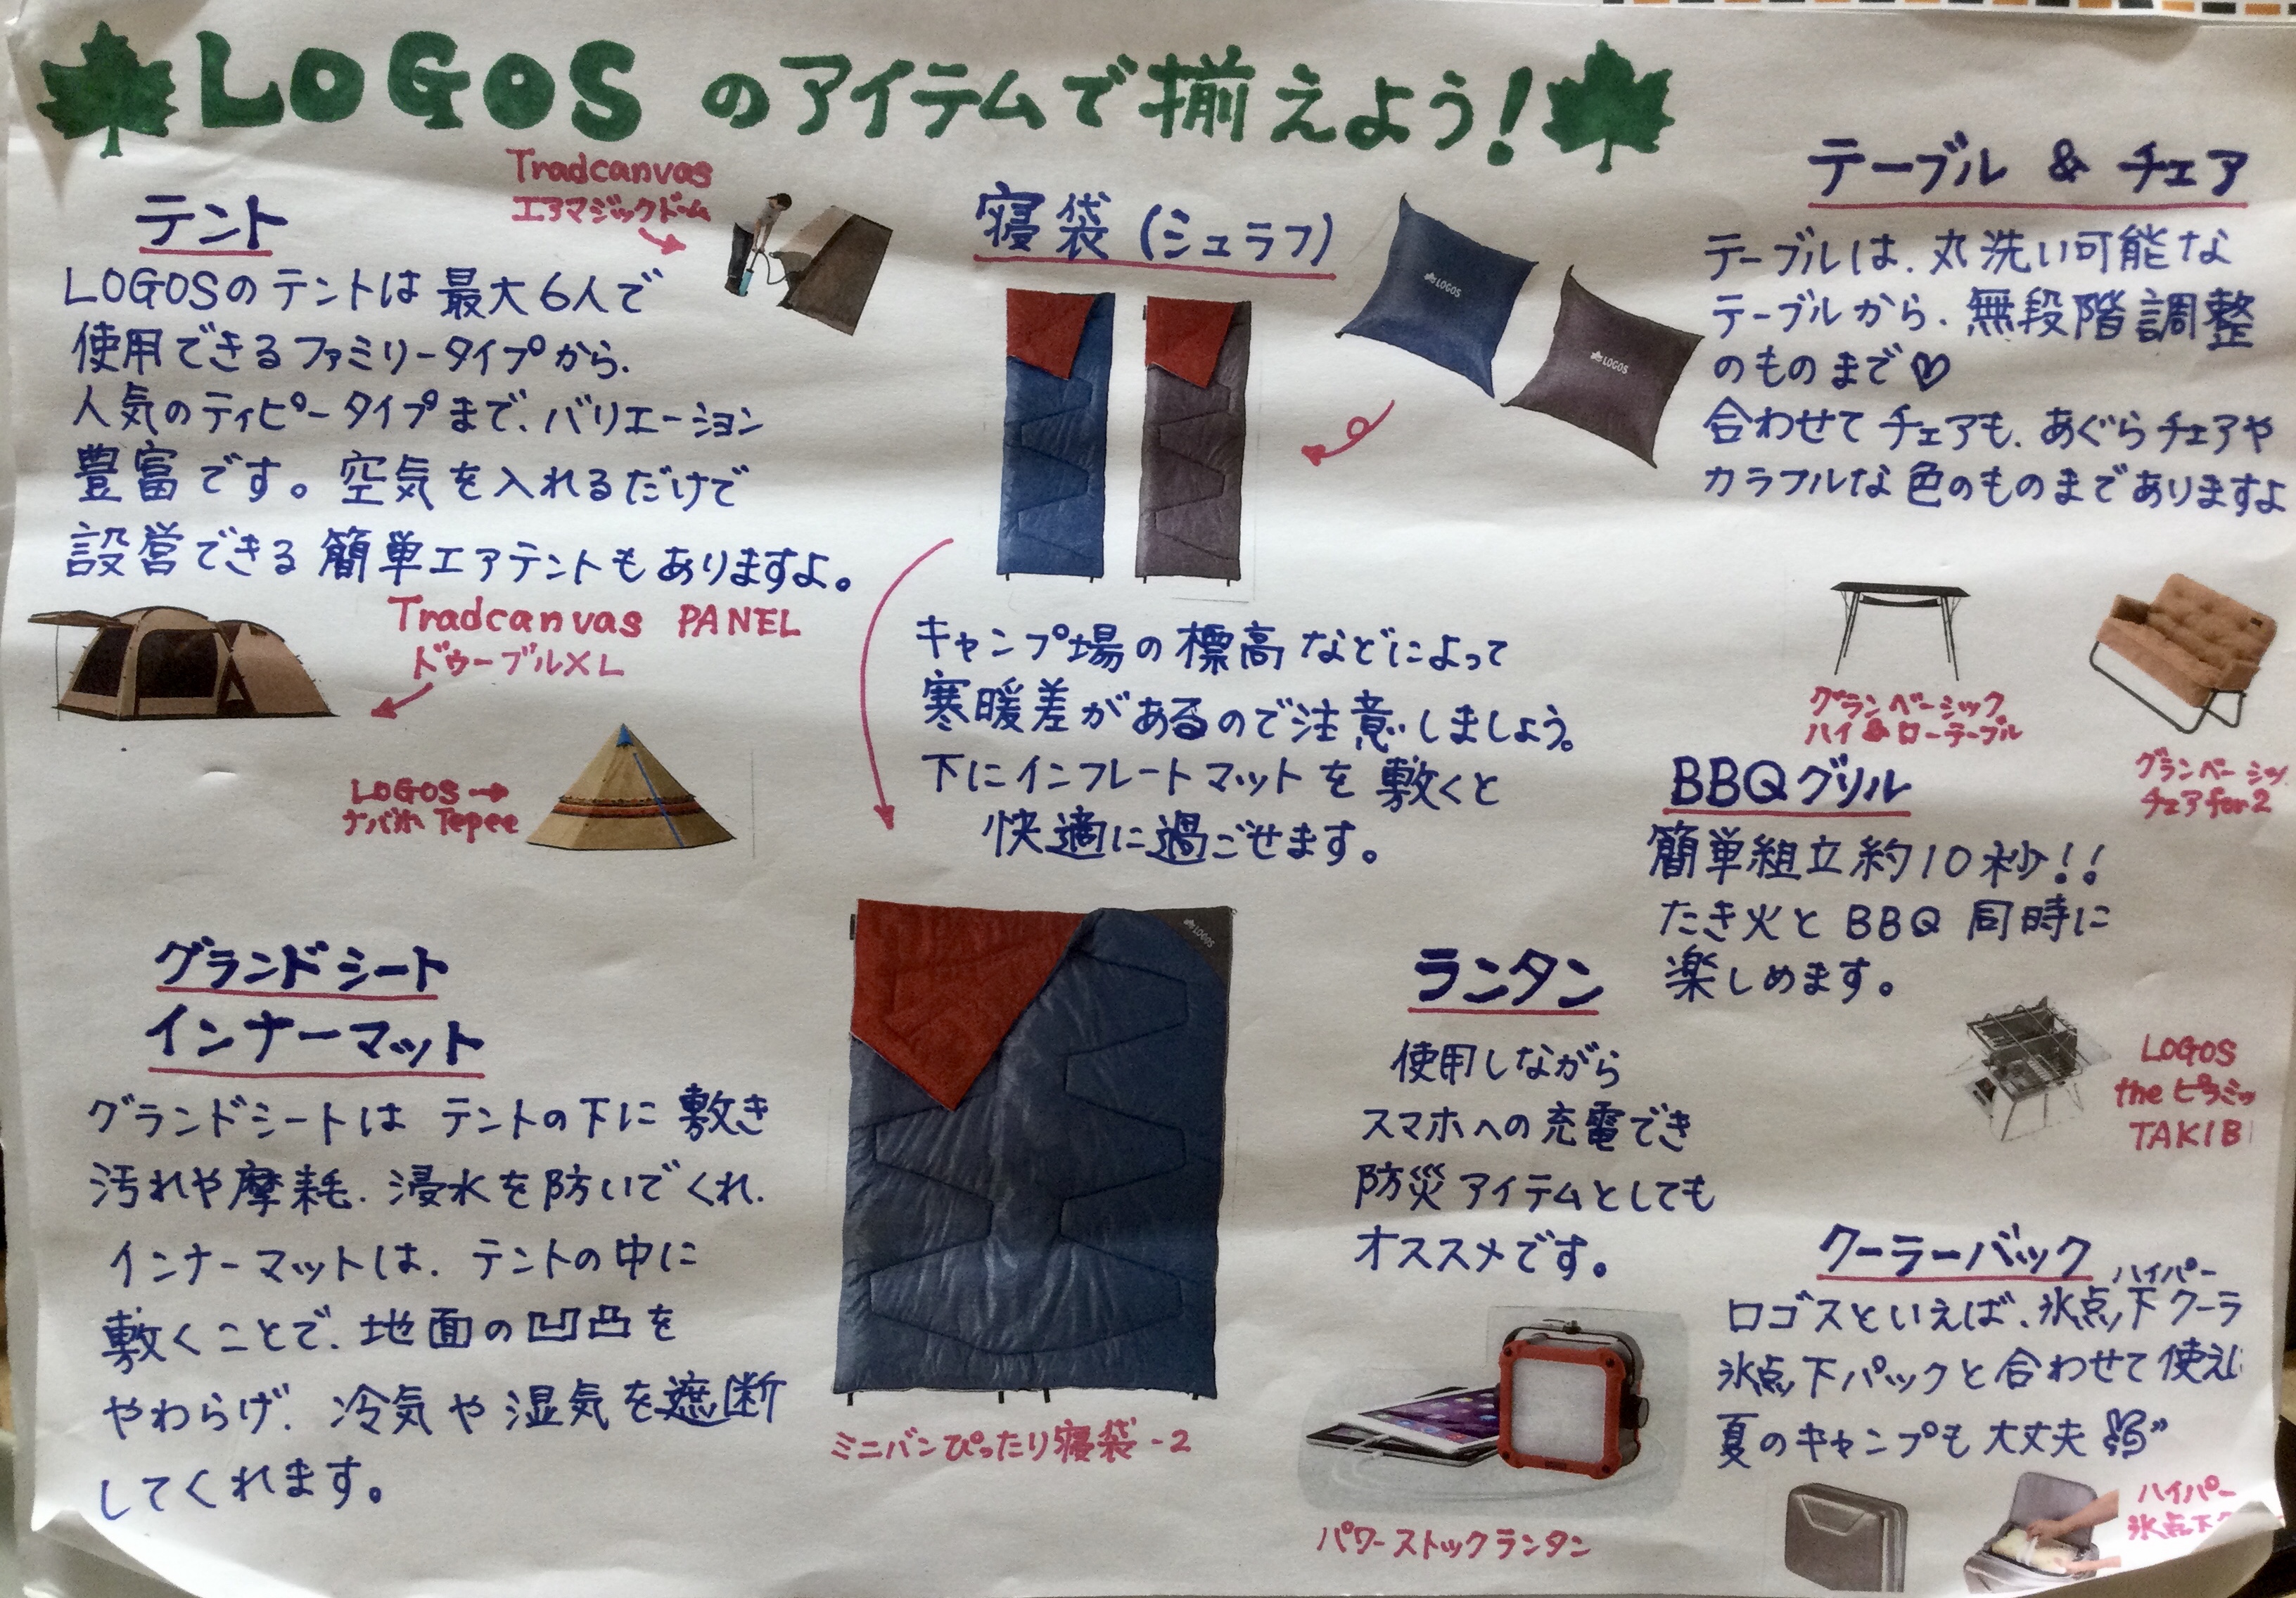 LOGOSのアイテムで揃えよう!
テント
Tradcanvas
エアマジックドーム
LOGOSのテントは最大6人で
使用できるファミリータイプから、
人気のティピータイプまで、バリエーション
豊富です。空気を入れるだけで
設営できる簡単エアテントもありますよ。
Tradcanvas PANEL
ドゥーブルXL
LOGOS→
ナバホ Tepee
グランドシート
インナーマット
グランドシートは テントの下に敷き
汚れや摩耗、浸水を防いでくれ、
インナーマットは、テントの中に
敷くことで、地面の凹凸を
やわらげ、冷気や湿気を遮断
してくれます。
寝袋(シュラフ)
LOGOS
LOGOS
キャンプ場の標高などによって
寒暖差があるので注意しましょう。
下にインフレートマットを敷くと
快適に過ごせます。
LOGOS
ミニバンぴったり寝袋-2
ランタン
使用しながら
スマホへの充電でき
防災アイテムとしても
オススメです。
パワーストックランタン
テーブル & チェア
テーブルは、丸洗い可能な
テーブルから、無段階調整
のものまで♡
合わせてチェアも、あぐらチェアや
カラフルな色のものまでありますよ
グランベーシック
ハイ&ローテーブル
グランベーシッ
チェアfor2
BBQグリル
簡単組立約10秒!!
たき火とBBQ同時に
楽しめます。
LOGOS
theピラミッ
TAKIBI
クーラーバック
ハイパー
ロゴスといえば、氷点下クーラ
氷点下パックと合わせて使え
夏のキャンプも大丈夫
ハイパー
氷点下ク